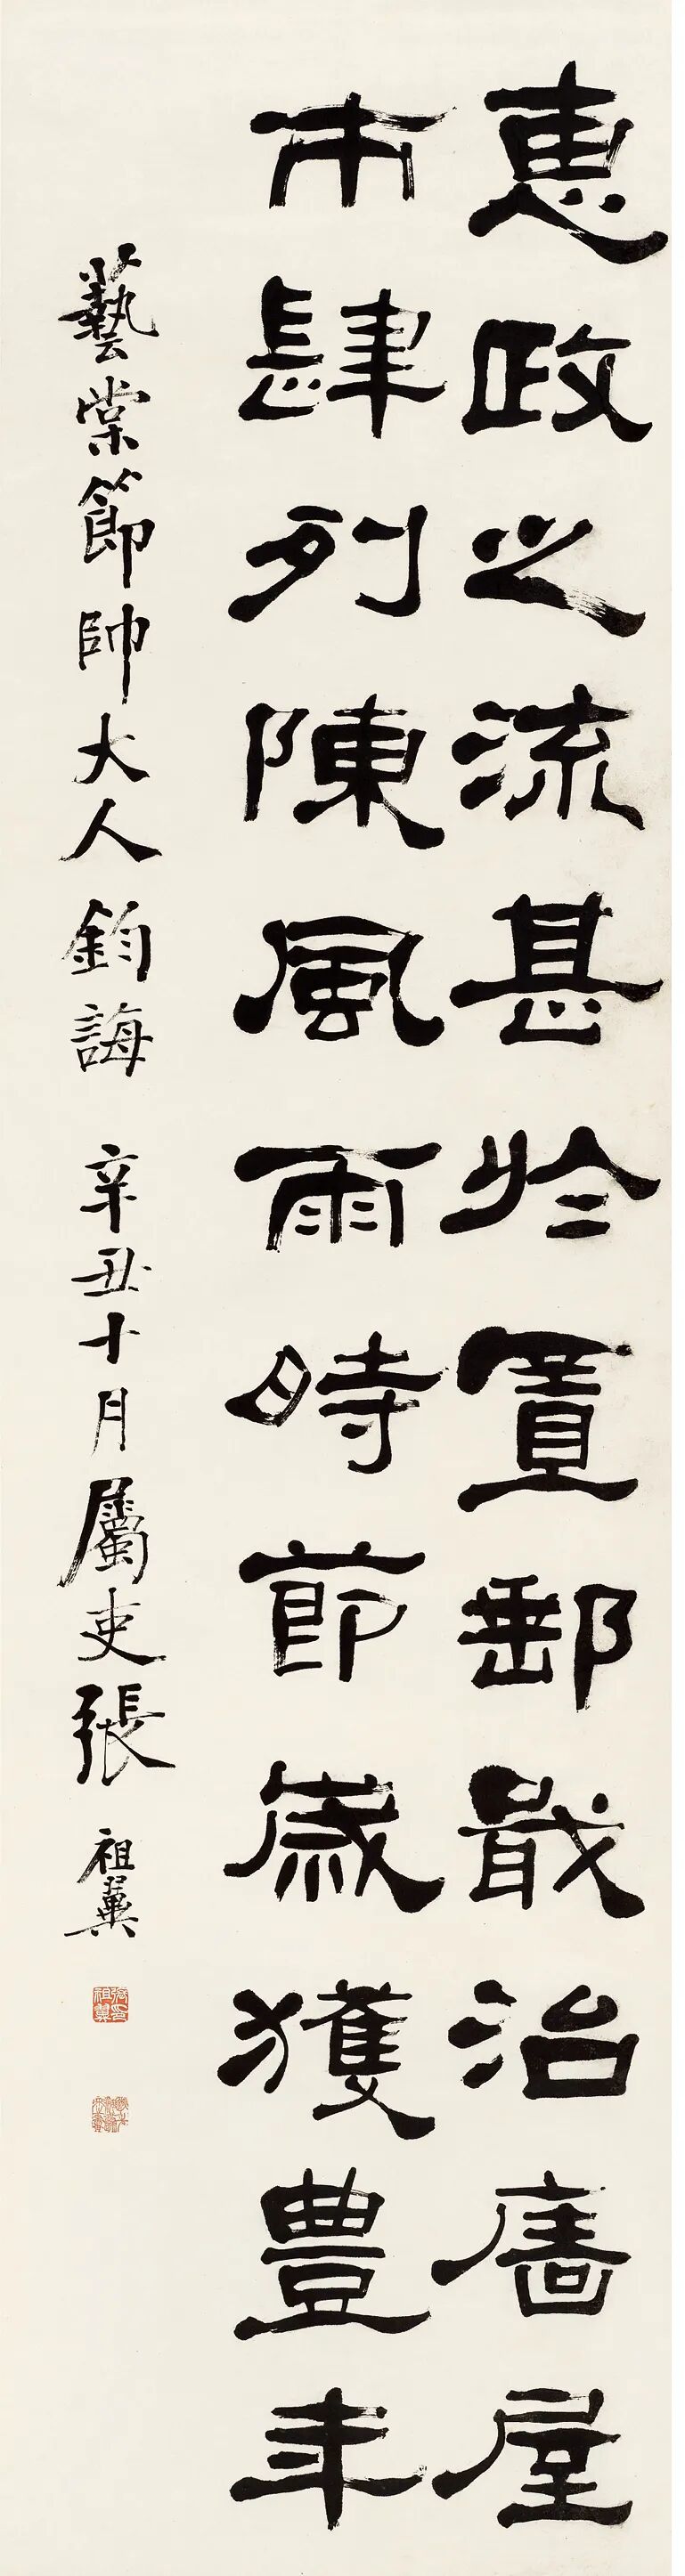 惠政之流甚於置郵戢治廧屋
市肆列陳風雨時節歲獲豐年
藝棠節帥大人鈞誨 辛丑十月屬吏張祖翼
張祖翼印